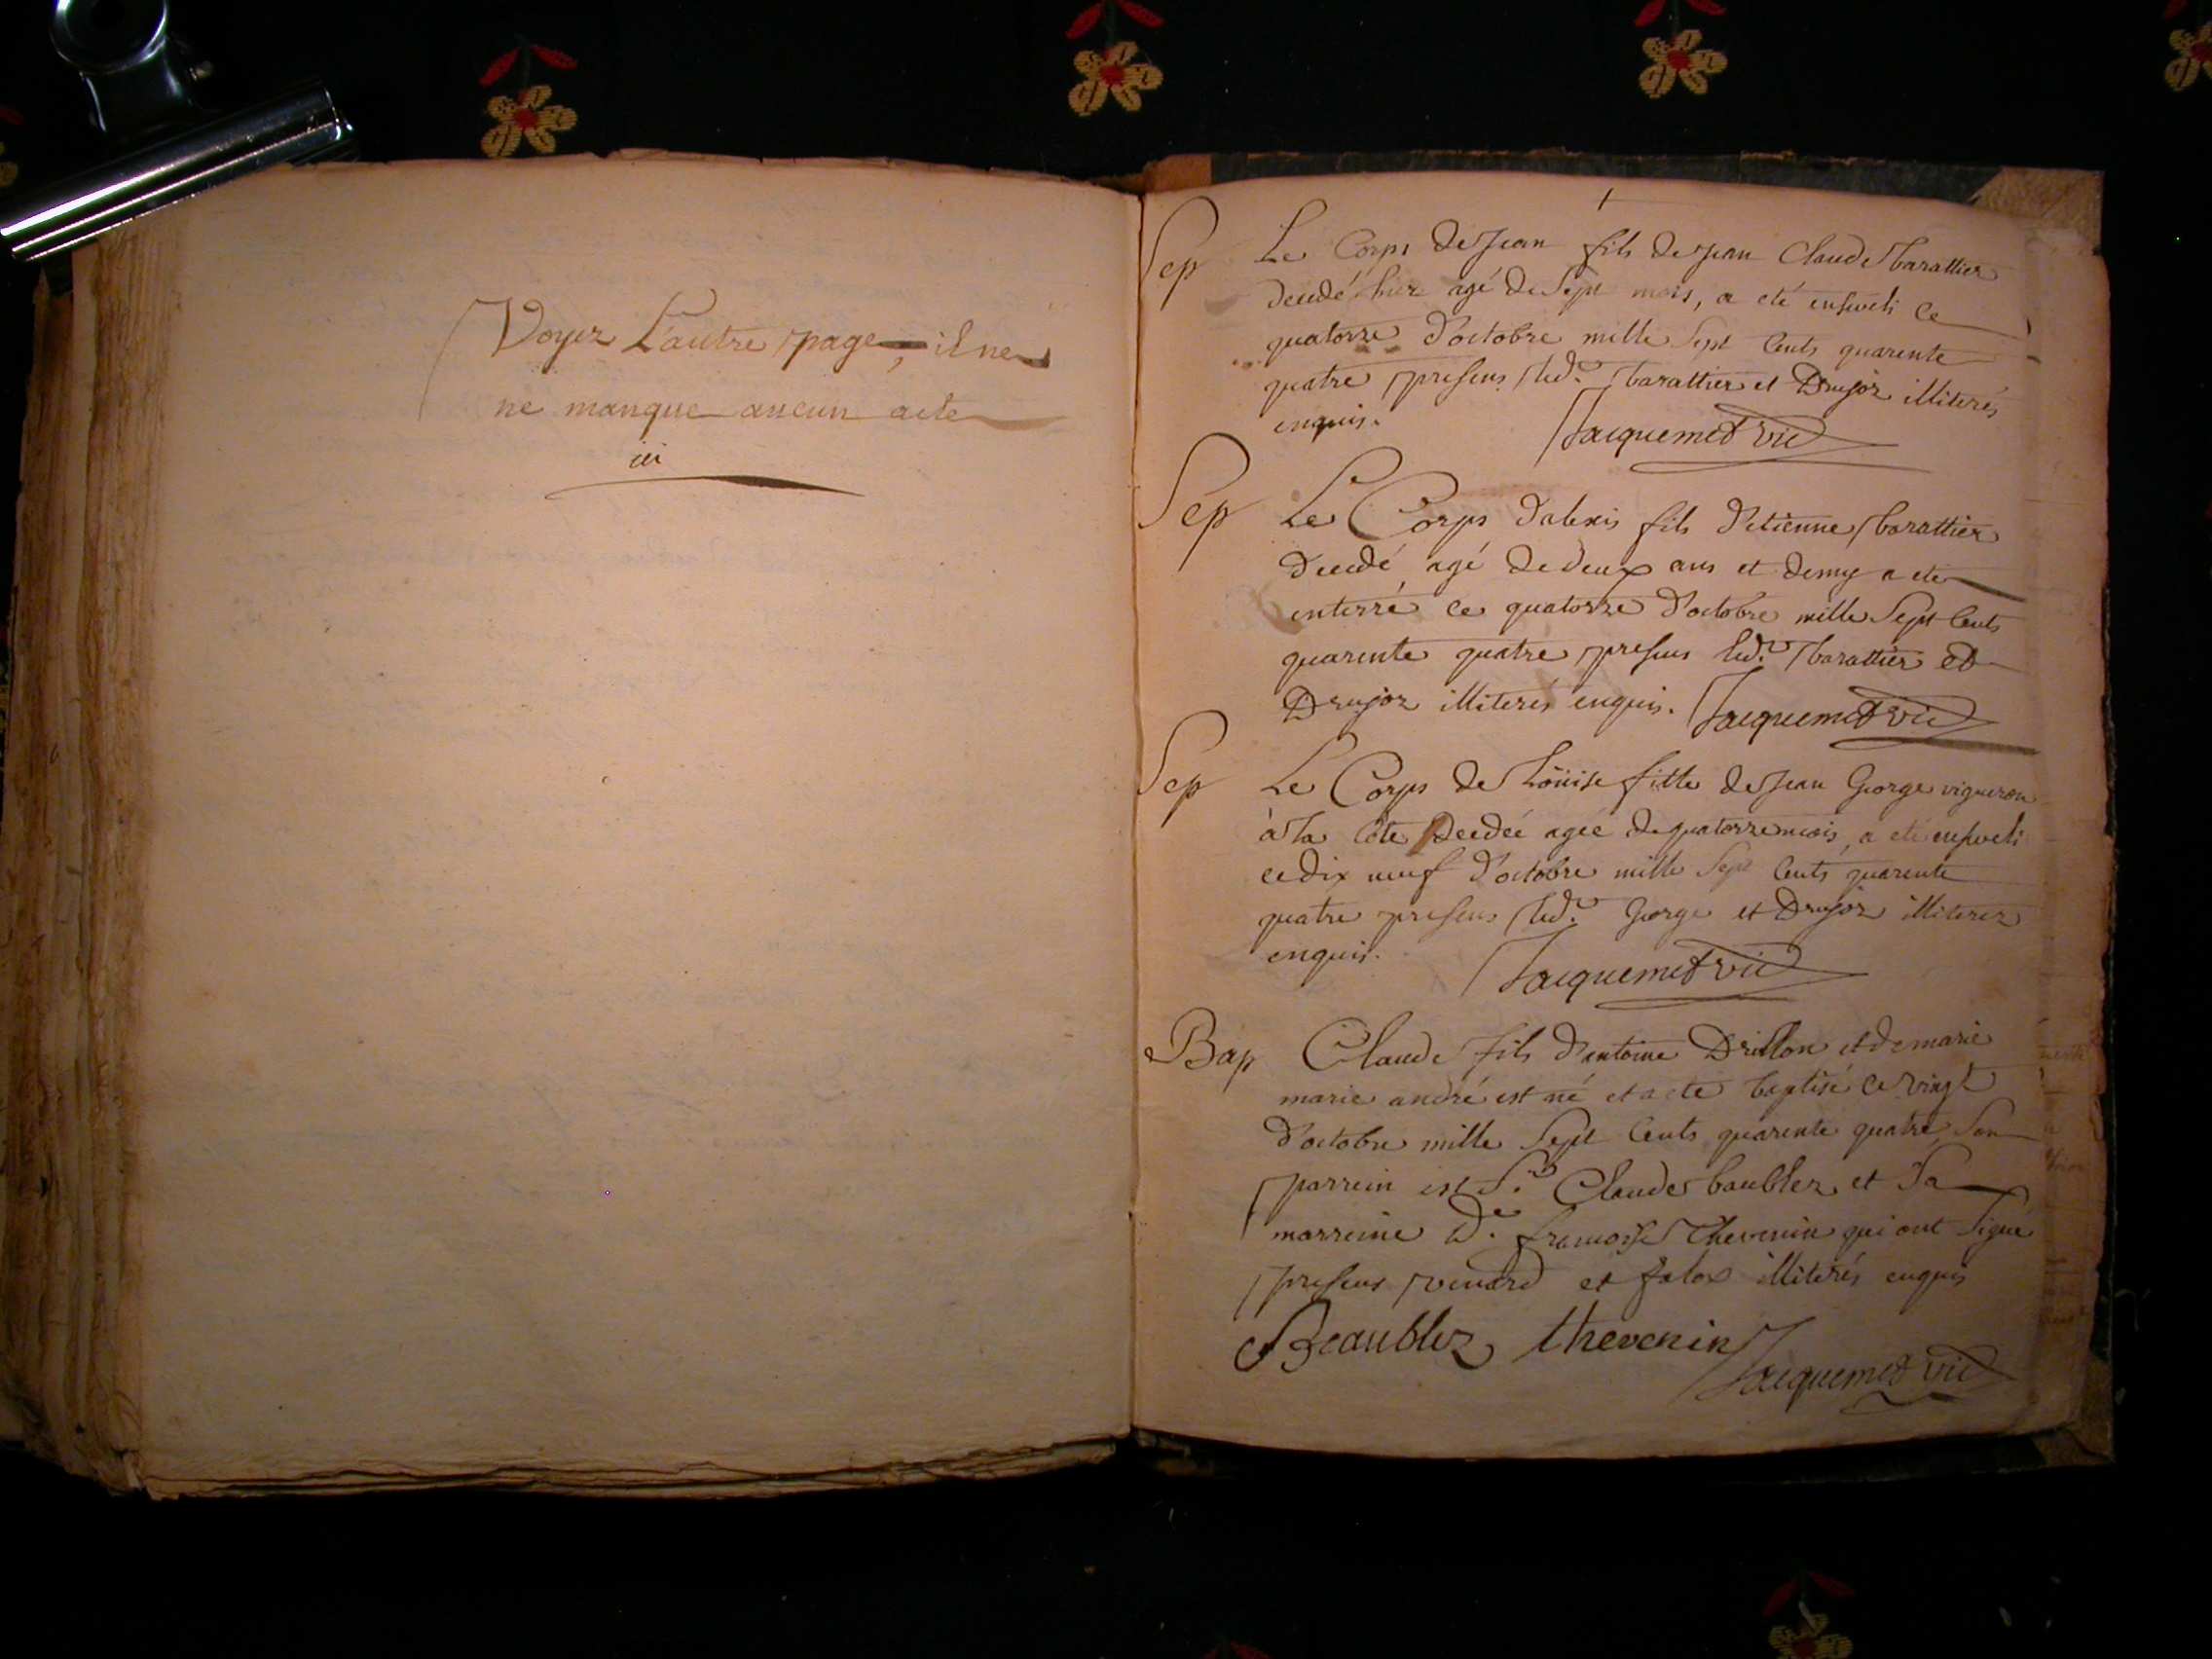 Voyez L'autre page, il ne
ne manque aucun acte
ici
Sep Le Corps de Jean fils de Jean Claude barattier
decedé hier agé de Sept mois, a eté enseveli ce
quatorze d'octobre mille Sept Cents quarente
quatre presens led.t barattier et Drujoz illiterés
enquis. Jacquemet vic
Sep Le Corps d'alexis fils d'etienne barattier
decedé, agé de deux ans et demy a eté
enterré ce quatorze d'octobre mille Sept Cents
quarente quatre presens led.t barattier et
Drujoz illiterés enquis. Jacquemet vic
Sep Le Corps de Loüise fille de Jean George vigneron
à la Côte Decedée agée de quatorze mois, a eté enseveli
ce dix neuf d'octobre mille Sept Cents quarente
quatre presens led.t George et Drujoz illiterez
enquis. Jacquemet vic
Bap Claude fils d'antoine Drillon et de marie
marie andré est né et a eté baptisé ce vingt
d'octobre mille Sept Cents quarente quatre Son
parrein est S.r Claude baublez et Sa
marreine d.e francoise Thevenin qui ont Signé
presens venard et falox illiterés enquis
Beaublez thevenin
Jacquemet vic